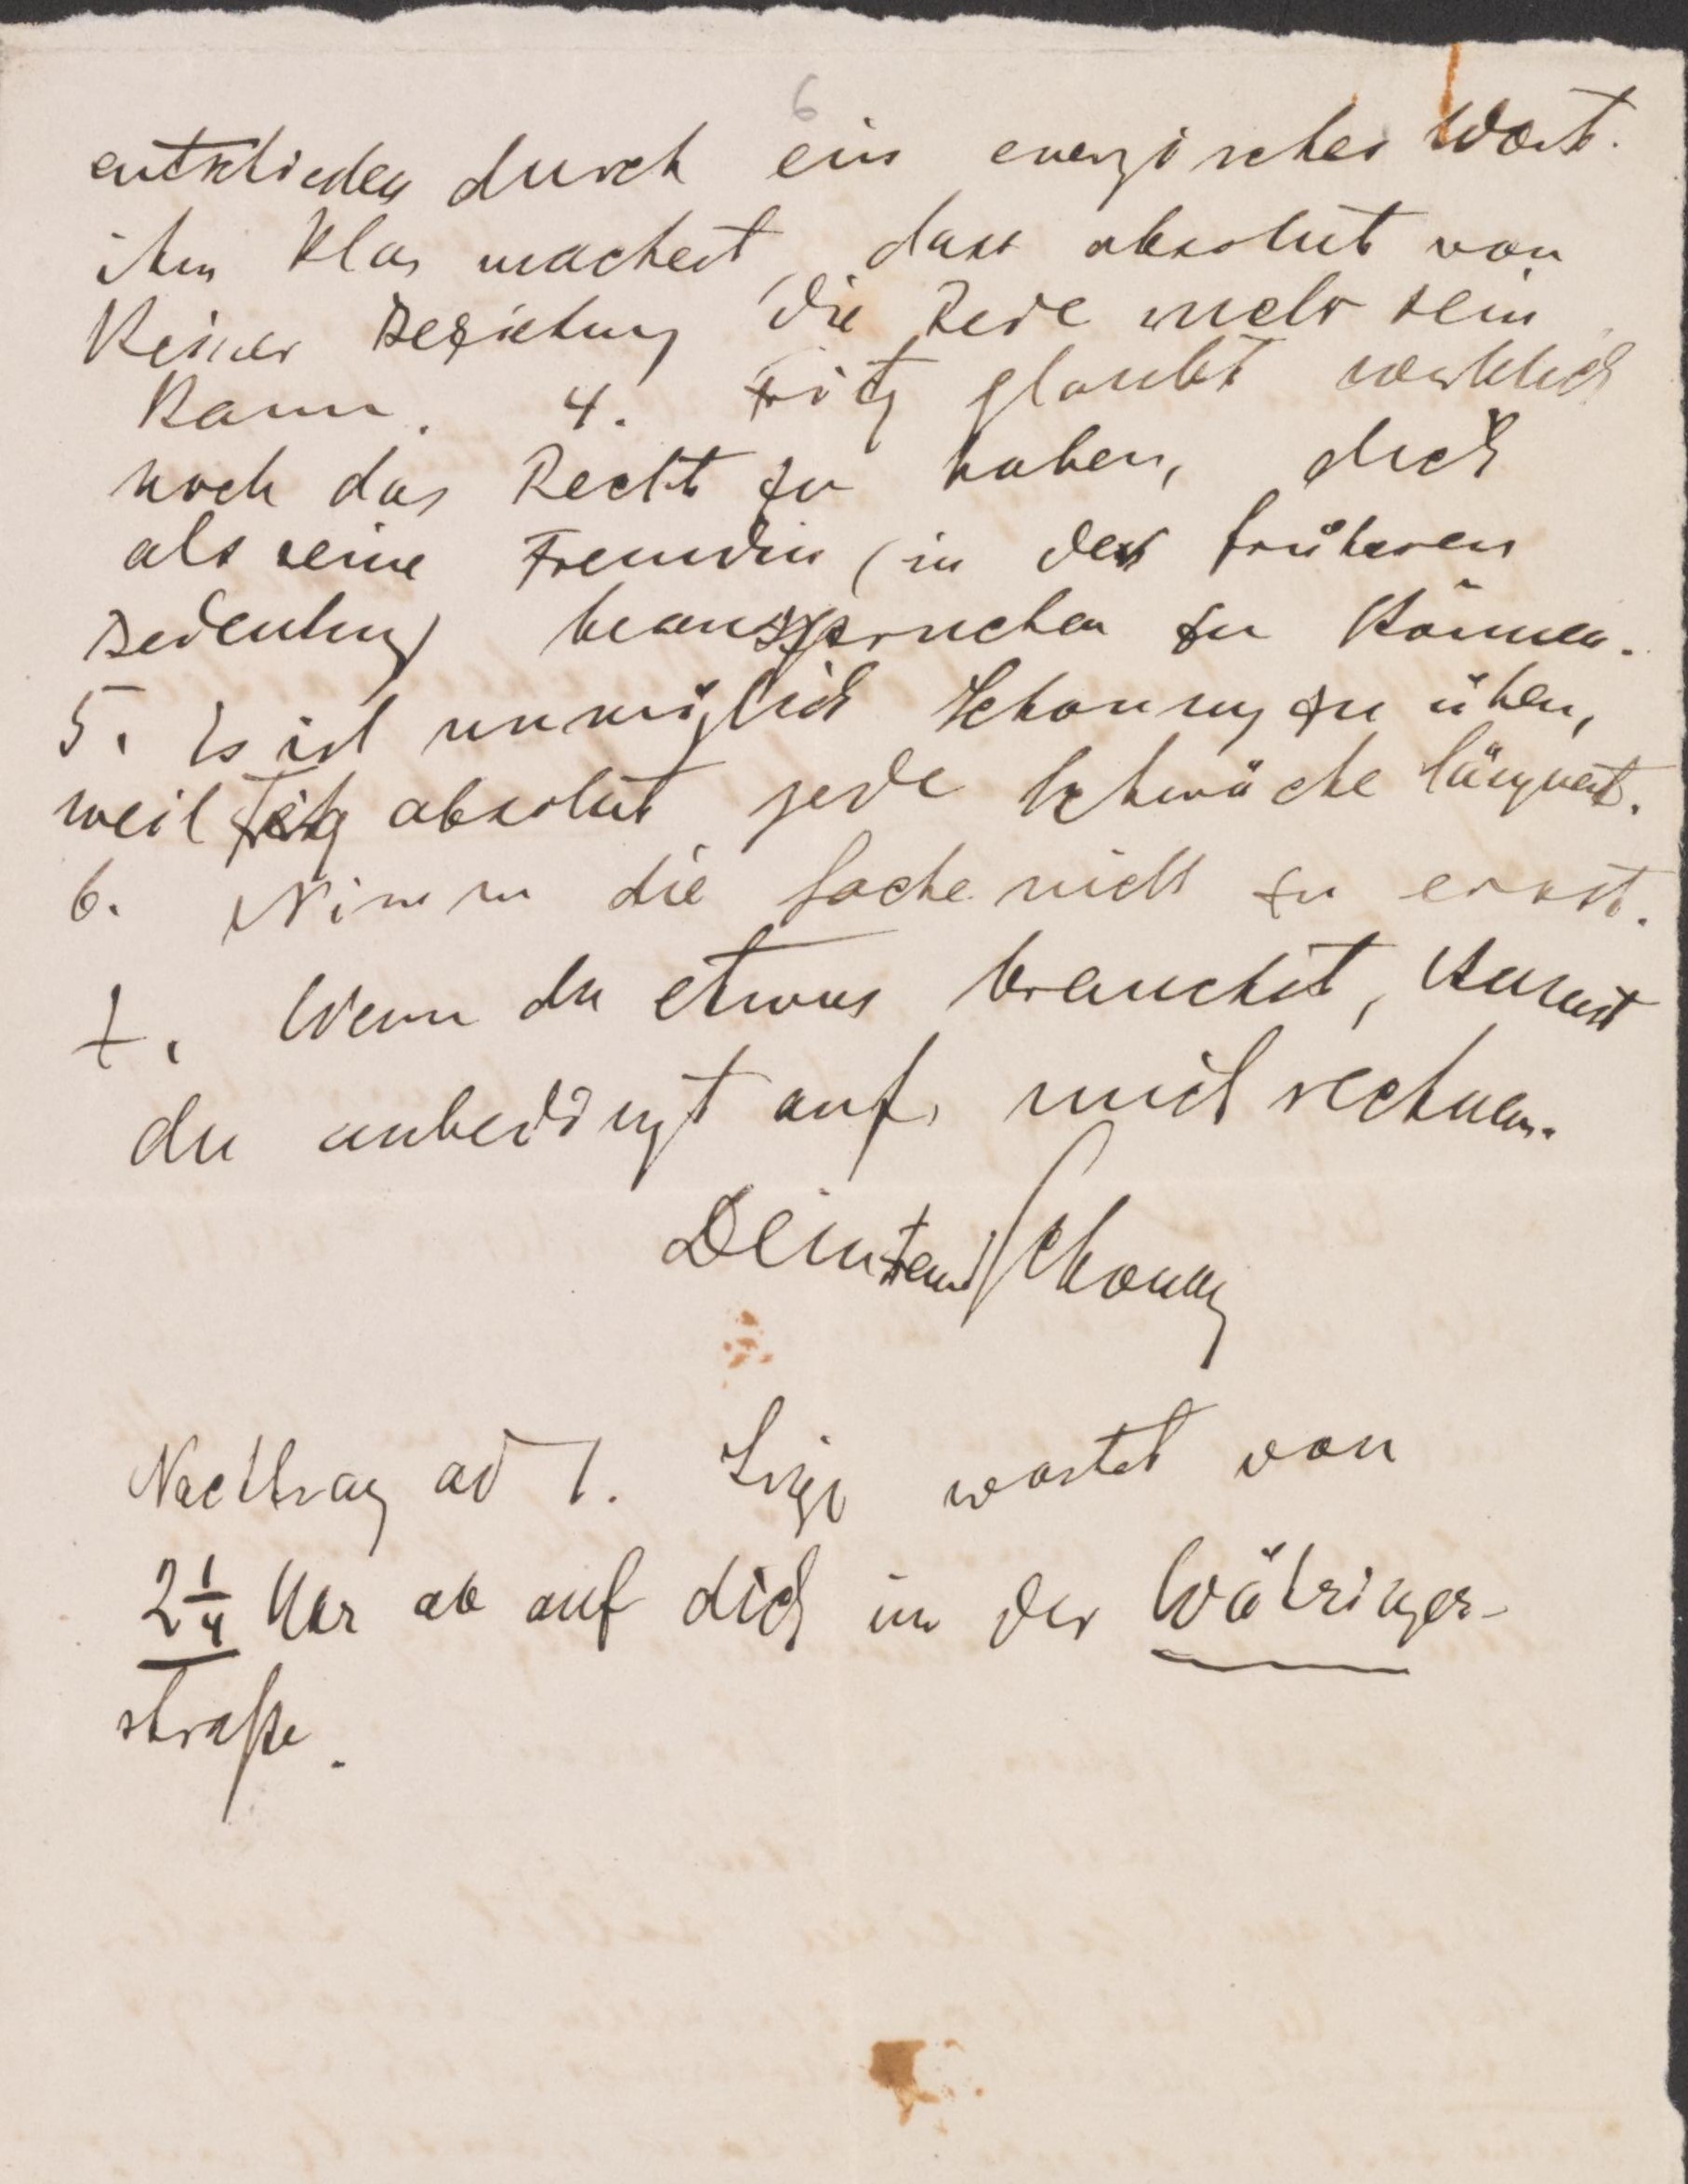 6
entschieden durch ein energisches Wort.
ihm klar machest, dass absolut von
keiner Beziehung die Rede mehr sein
kann. 4. Fritz glaubt wirklich
noch das Recht zu haben, dich
als seine Freundin (in der früheren
Bedeutung beanspruchen zu können.
5. Es ist unmöglich Schonung zu üben,
weil Fritz absolut jede Schwäche läugnet.
6. Nimm die Sache nicht zu ernst.
7. Wenn du etwas brauchst, kannst
du unbedingt auf mich rechnen.
Dein
Nachtrag ad 1. Lizzi wartet von
2 1/4 Uhr ab auf dich in der Währinger-
straße.